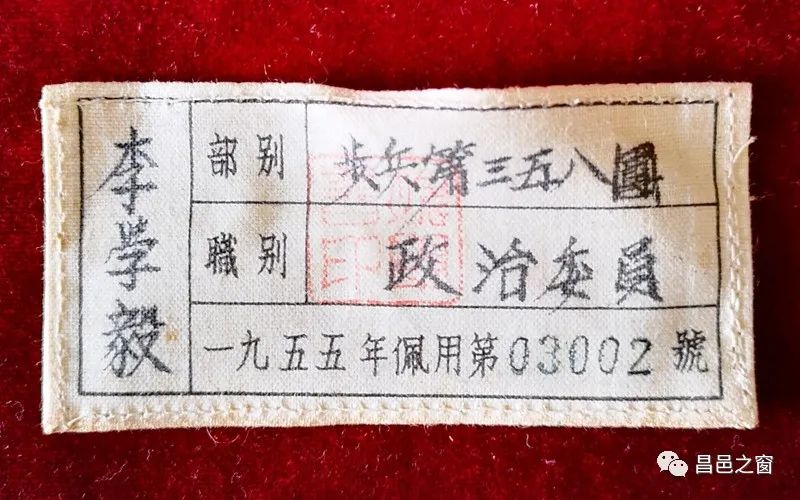 李学毅
部别 步兵第三五八團
職别 政治委員
一九五五年佩用第03002號
昌邑之窗